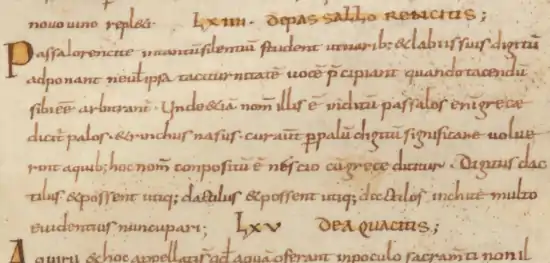 novo vino repleat LXIIII. DE PASSALLO RENCITIS;
Passalorencite intantū silentiū student ut narib; & labiis suis digitū
adponant ne vel ipsa taciturnitatē vocē p̄cipiant quando tacendū
sibi eē arbitrant. Unde & iā nom̄ illis ē inditū passalos enī grece
dicit palos. & rinchus nasus. cur aut̄ p palū digitū significare volue
rint a quib; hoc nom̄ compositū ē nescio cū grece dicitur. Digitus dac
tilus & possent utiq; dactulus & possent utiq; dactilos inchite multo
evidentius nuncupari; LXV DE AQUACITIS;
Aquiru & hoc appellatis qd aquā offerant in poculo sacram̄ti non il